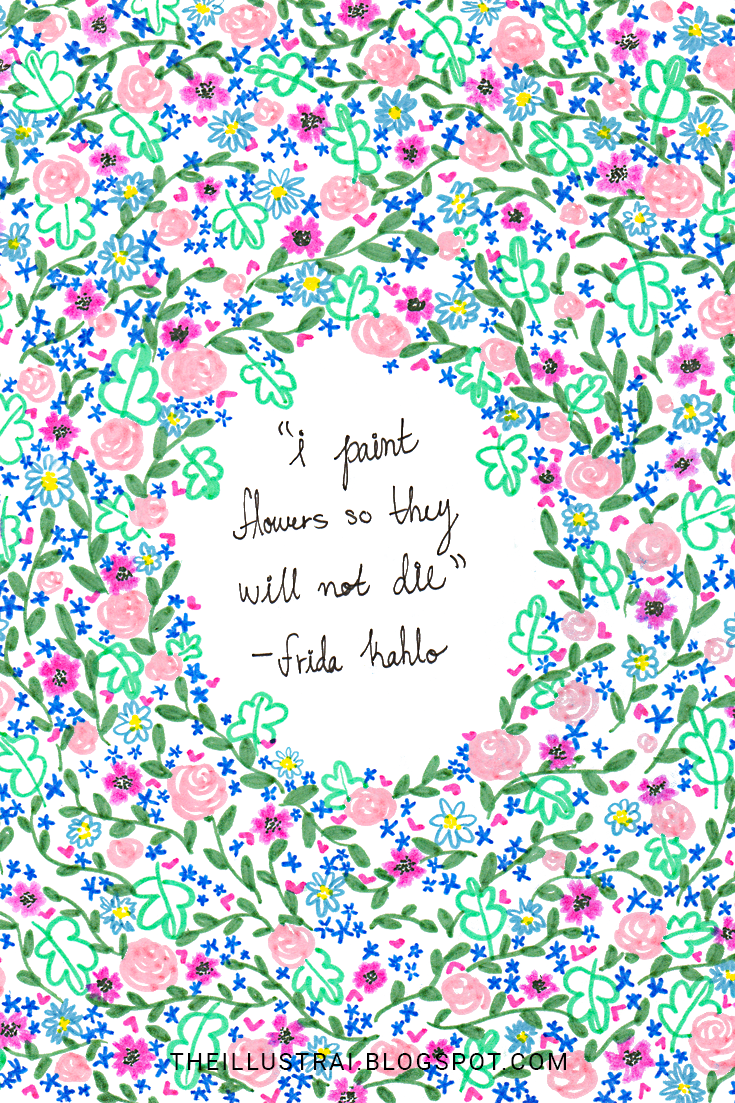 “i paint
flowers so they
will not die”
- frida kahlo
THEILLUSTRAI.BLOGSPOT.COM